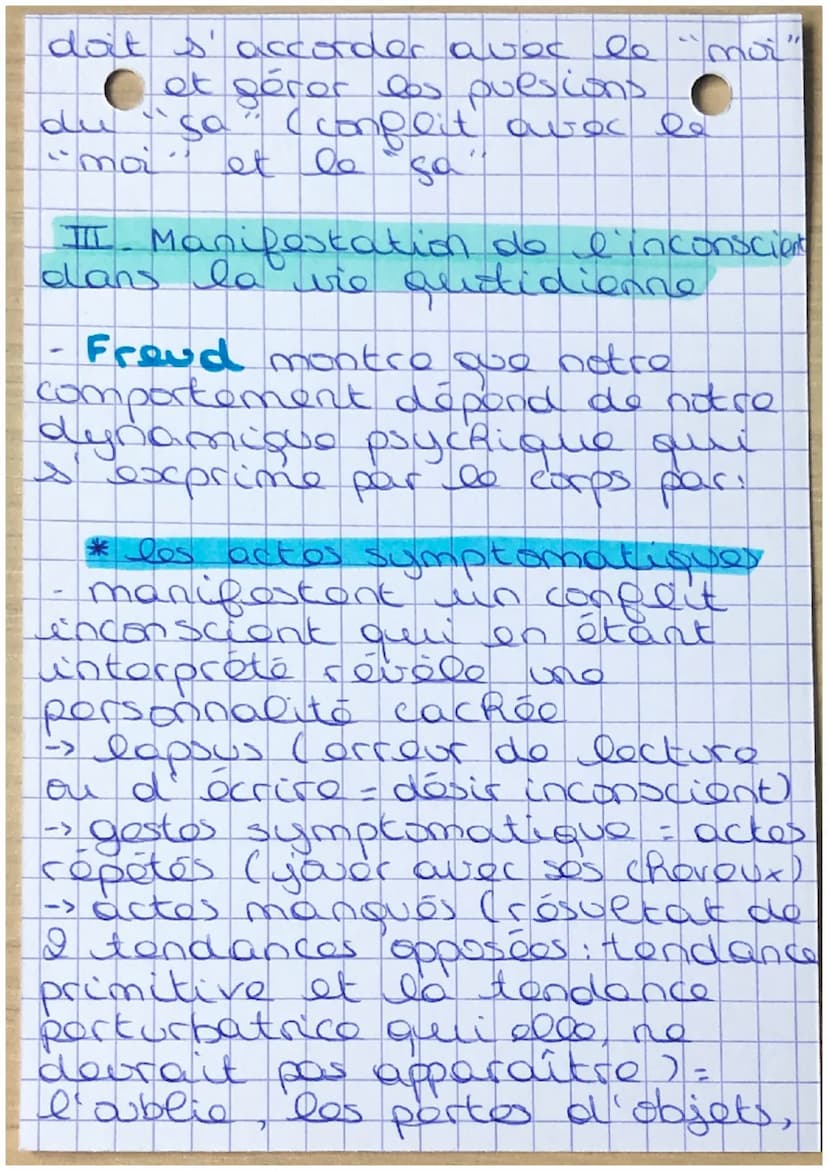 doit s'accorder avec le "moi"
et gérer les pulsions
du "ça" (conflit avec le
"moi" et le "ça"
III - Manifestation de l'inconscient
dans la vie quotidienne
- Freud montre que notre
comportement dépend de notre
dynamique psychique qui
s'exprime par le corps par:
* les actes symptomatiques
- manifestent un conflit
inconscient qui en étant
interprété révèle une
personnalité cachée
-> lapsus (erreur de lecture
ou d'écrire = désir inconscient)
-> gestes symptomatique = actes
répétés (jouer avec ses cheveux)
-> actes manqués (résultat de
2 tendances opposées : tendance
primitive et la tendance
perturbatrice qui elle, ne
devrait pas apparaître) =
l'oublie, les pertes d'objets,